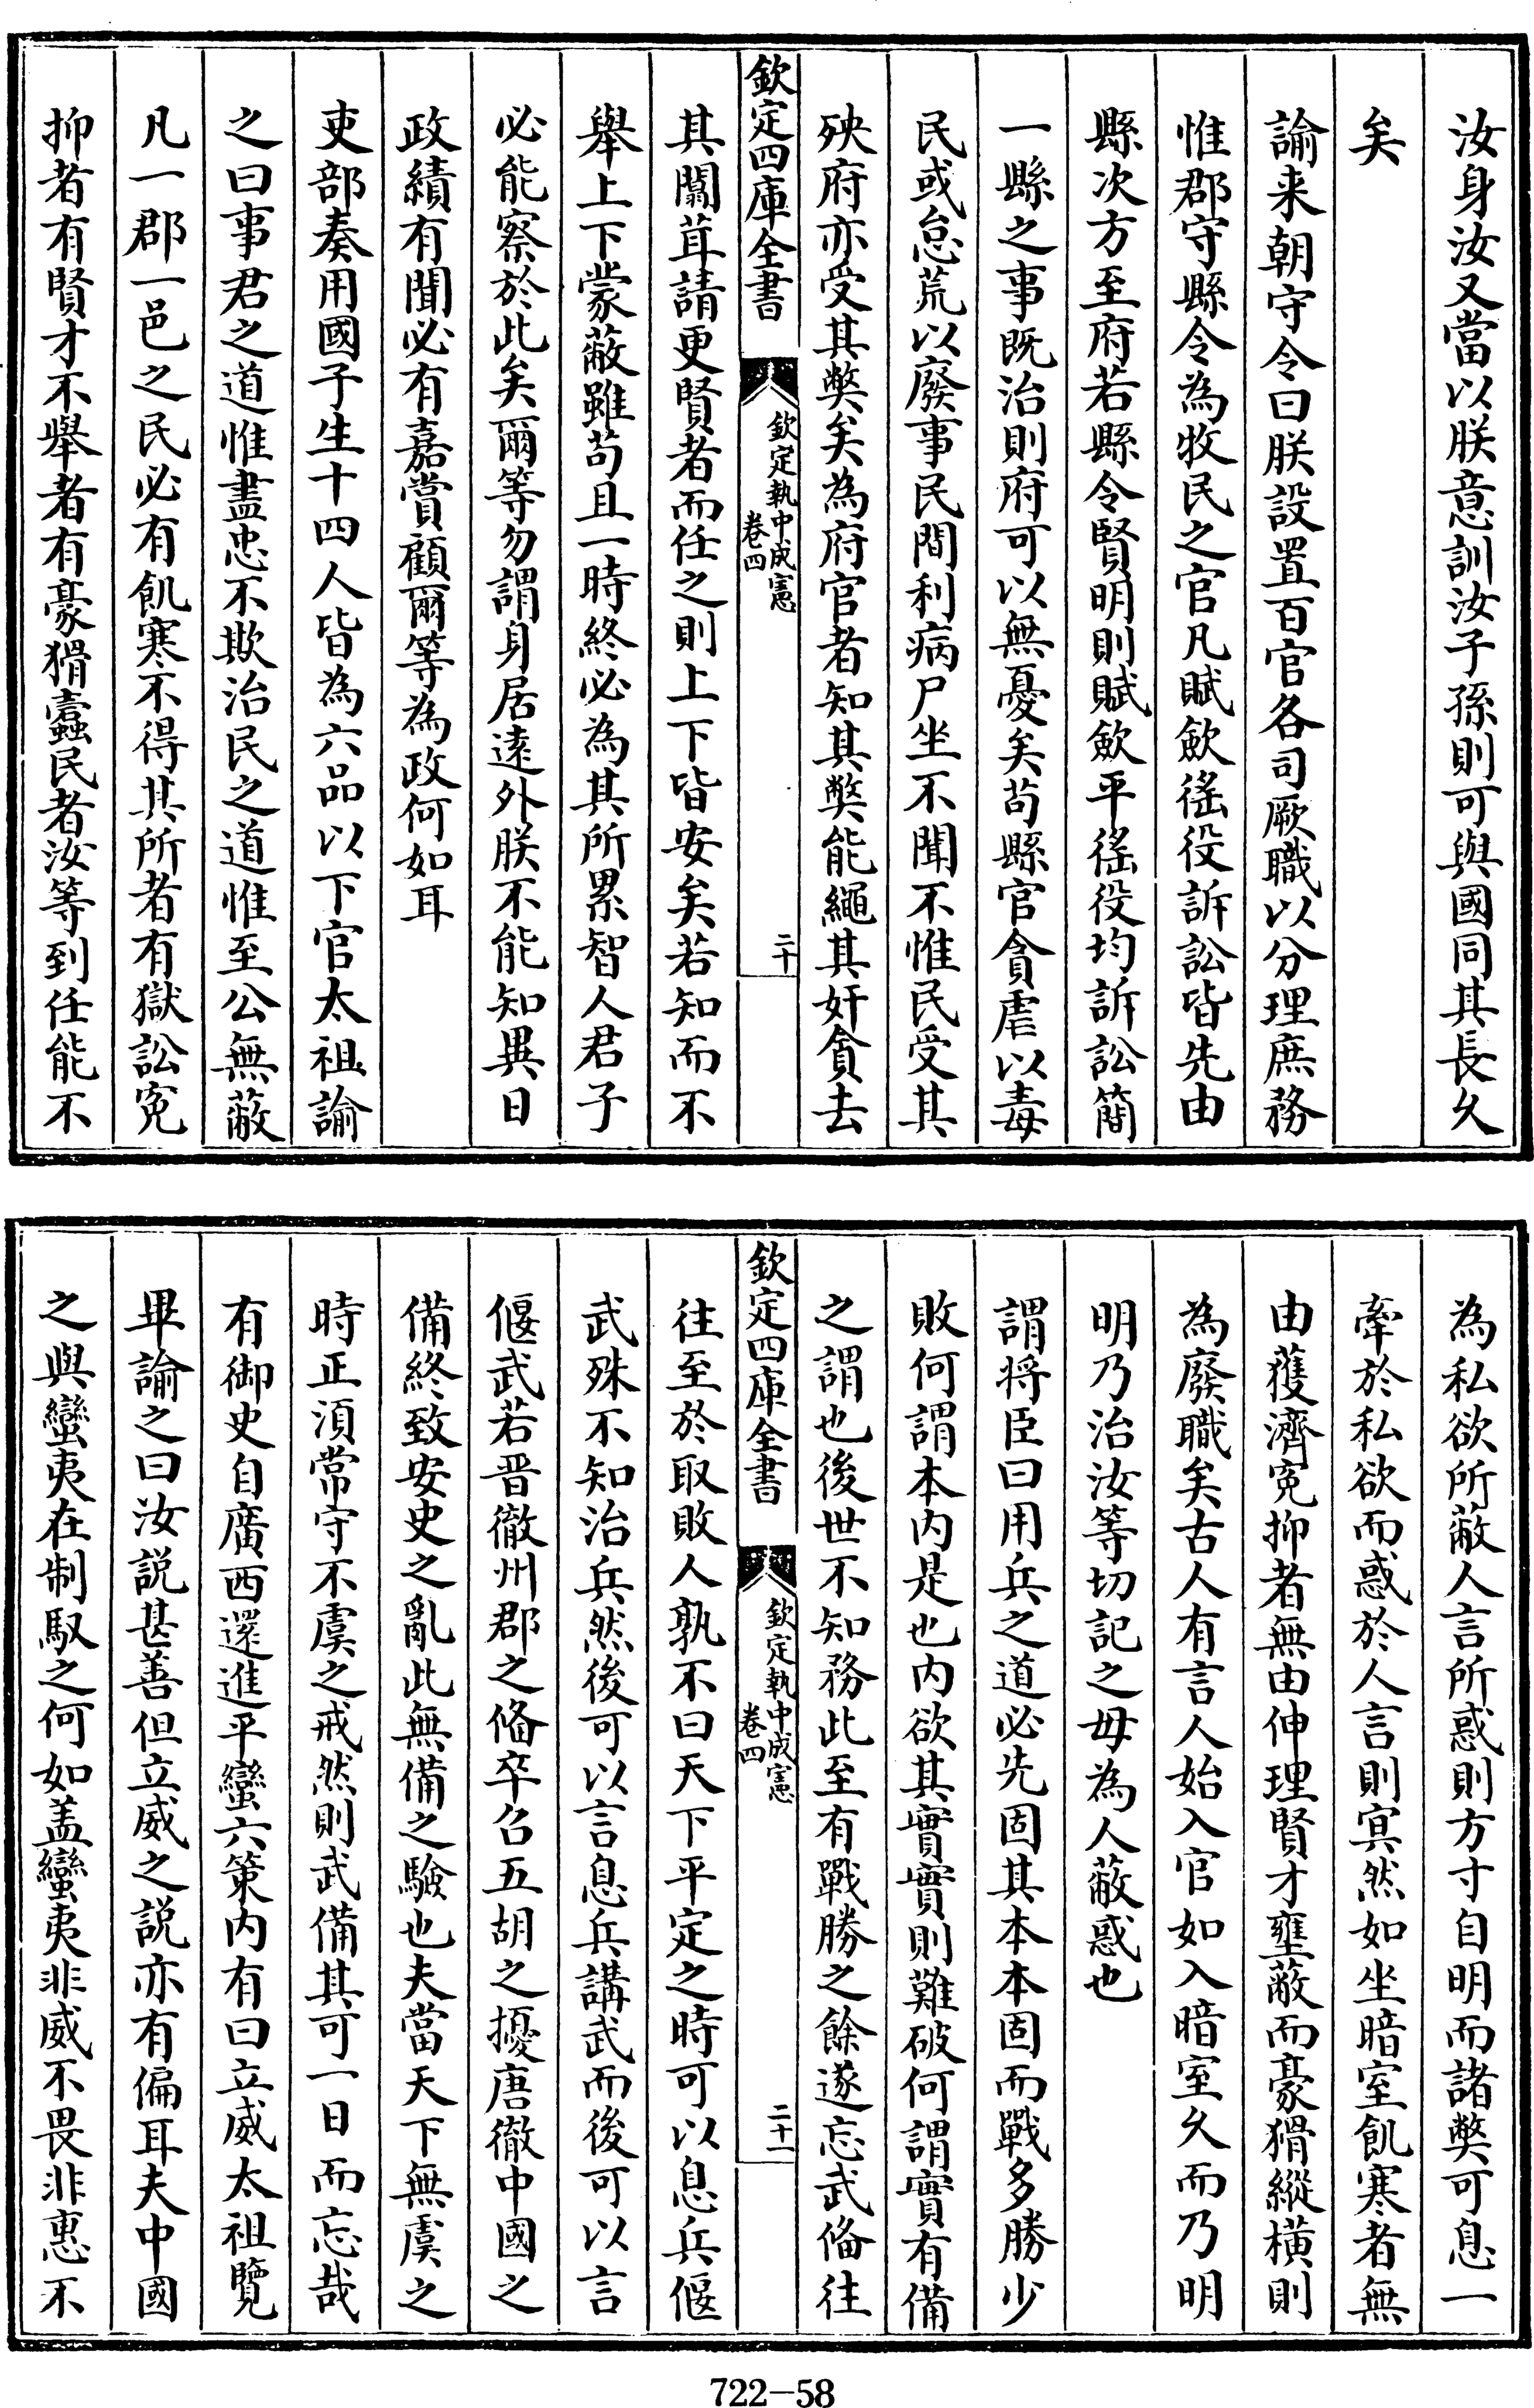 汝身汝又當以朕意訓汝子孫則可與國同其長久
矣
諭来朝守令曰朕設置百官各司厥職以分理庶務
惟郡守縣令為牧民之官凡賦歛徭役訴訟皆先由
縣次方至府若縣令賢明則賦歛平徭役均訴訟簡
一縣之事既治則府可以無憂矣苟縣官貪虐以毒
民或怠荒以廢事民間利病尸坐不聞不惟民受其
殃府亦受其弊矣為府官者知其弊能繩其奸貪去
欽定四庫全書
欽定執中成憲
卷四
二十
其闒茸請更賢者而任之則上下皆安矣若知而不
舉上下蒙蔽雖苟且一時終必為其所累智人君子
必能察於此矣爾等勿謂身居遠外朕不能知異日
政績有聞必有嘉賞顧爾等為政何如耳
吏部奏用國子生十四人皆為六品以下官太祖諭
之曰事君之道惟盡忠不欺治民之道惟至公無蔽
凡一郡一邑之民必有飢寒不得其所者有獄訟寃
抑者有賢才不舉者有豪猾蠹民者汝等到任能不
為私欲所蔽人言所惑則方寸自明而諸弊可息一
牽於私欲而惑於人言則冥然如坐暗室飢寒者無
由獲濟寃抑者無由伸理賢才壅蔽而豪猾縱橫則
為廢職矣古人有言人始入官如入暗室久而乃明
明乃治汝等切記之毋為人蔽惑也
謂将臣曰用兵之道必先固其本本固而戰多勝少
敗何謂本内是也内欲其實實則難破何謂實有備
之謂也後世不知務此至有戰勝之餘遂忘武俻往
欽定四庫全書
欽定執中成憲
卷四
二十一
往至於取敗人孰不曰天下平定之時可以息兵偃
武殊不知治兵然後可以言息兵講武而後可以言
偃武若晋徹州郡之俻卒召五胡之擾唐徹中國之
備終致安史之亂此無備之驗也夫當天下無虞之
時正湏常守不虞之戒然則武備其可一日而忘哉
有御史自廣西還進平蠻六策内有曰立威太祖覽
畢諭之曰汝説甚善但立威之説亦有偏耳夫中國
之與蠻夷在制馭之何如盖蠻夷非威不畏非惠不
722—58